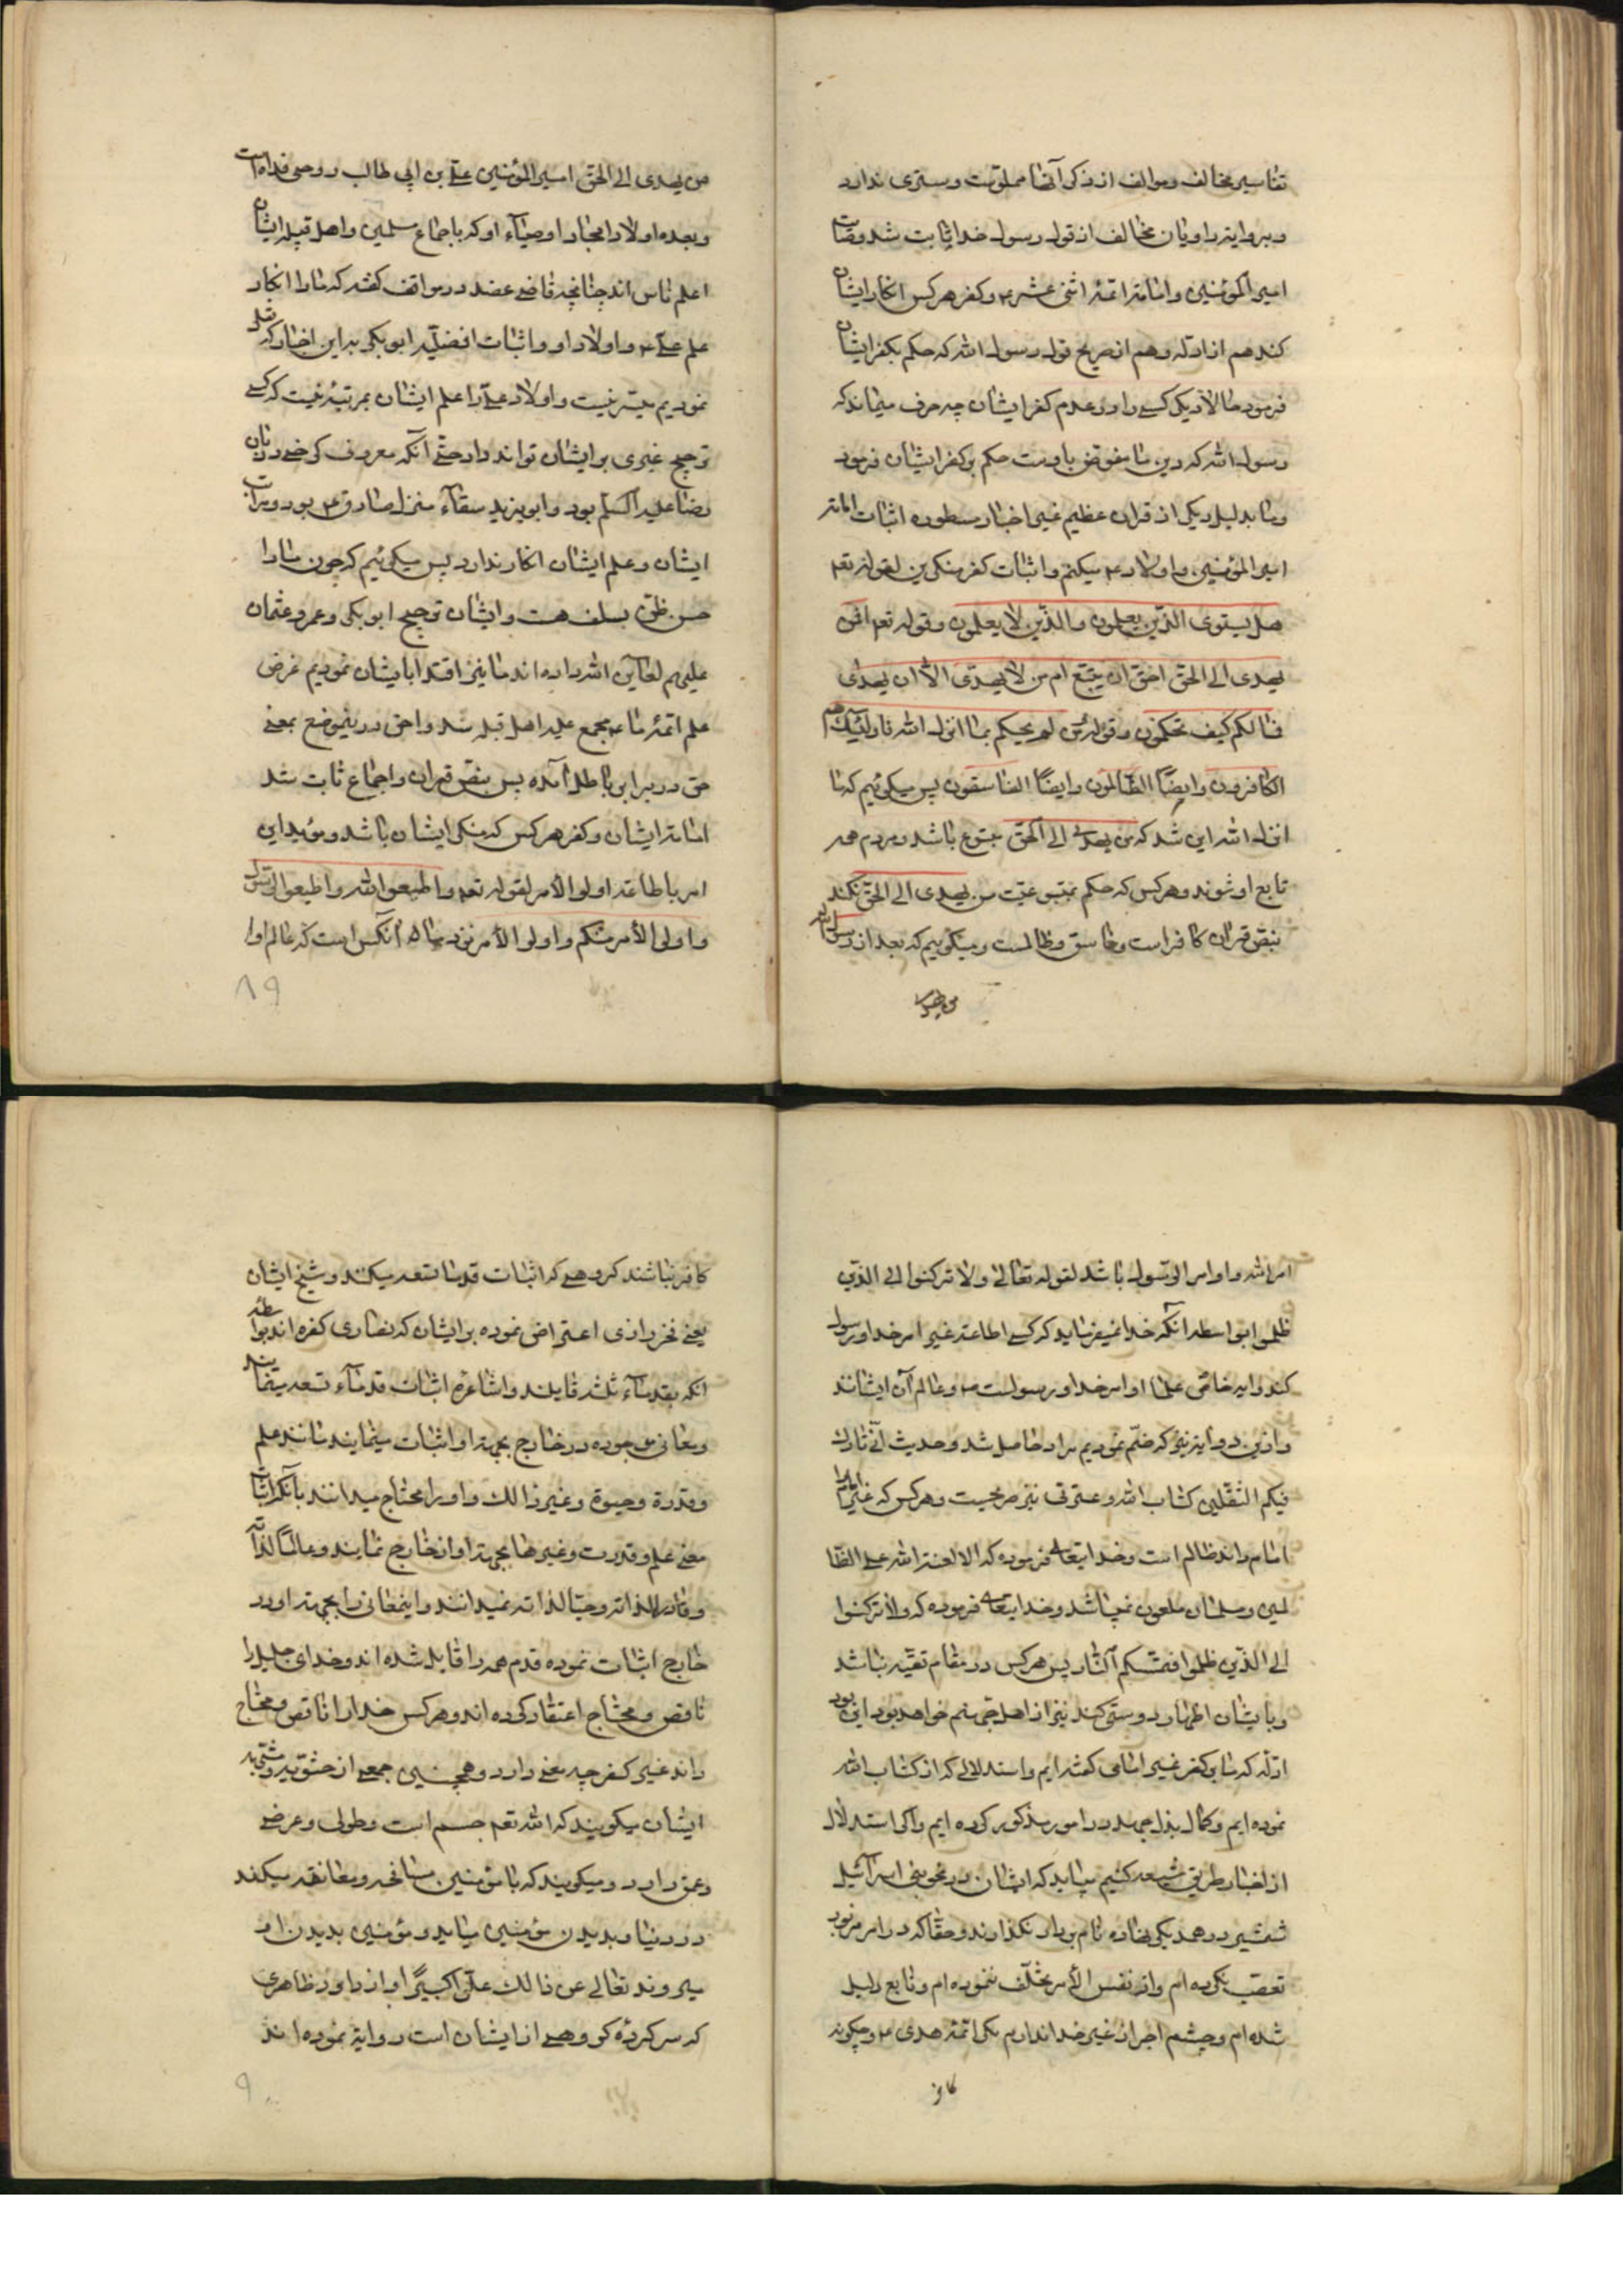 تفاسیر مخالف و موالف از ذکر آنها مملوّست و ستری ندارد
و بروایة راویان مخالف از قول رسول خدا ثابت شد وصایت
امیر المؤمنین و امامة ائمّهٔ اثنی عشر ع و کفر هر کس انکار ایشان
کند هم از ادلّه و هم از صریح قول رسول الله که حکم بکفر ایشان
فرمود حالا دیگر کسی را در عدم کفر ایشان چه حرف میماند که
رسول الله که دین ما مفوّض باوست حکم بر کفر ایشان فرمود
و ما بدلیل دیگر از قران عظیم غیر اخبار مسطوره اثبات امامة
امیر المؤمنین و اولاد ع میکنم و اثبات کفر منکرین لقوله تعم
هل یستوی الذّین یعلمون و الذّین لا یعلمون و قوله تعم افمن
یهدی الی الحق احقّ ان یتبّع ام من لا یهدّی الاّ ان یهدی
فما لکم کیف تحکمون و قوله من لم یحکم بما انزل الله فاولئک هم
الکافرون و ایضًا الظّالمون و ایضًا الفاسقون پس میکوئیم که ما
انزل الله این شد که من یهدی الی الحقّ متبوع باشد و مردم همه
تابع او شوند و هرکس که حکم بمتبوعیّت من یهدی الی الحقّ نکند
بنصّ قران کافر است و فاسق و ظالمست و میکوییم که بعد از رسول الله
من یهدی
من یهدی الی الحقّ امیر المؤمنین علی بن ابی طالب روحی فداه است
و بعده اولاد امجاد و اوصیاء او که باجماع مسلمین و اهل قبله ایشان
اعلم ناس اند چنانچه قاضی عضد در مواقف کفته که ما را انکار
علم علی ع و اولاد او و اثبات افضلیّة ابو بکر بداین اخبار که نقل
نمودیم میسّر نیست و اولاد علی را علم ایشان بمرتبهٔ نیست که کسی
ترجیح غیری بر ایشان تواند داد حتّی آنکه معروف کرخی دربان
رضا علیه السّلم بود و ابو یزید سقّاء منزل صادق ع بود و مراتب
ایشان و علم ایشان انکار ندارد پس میکوئیم که چون ما را
حسن ظنّ بسلف هست و ایشان ترجیح ابو بکر و عمر و عثمان
علیهم لعاین الله داده اند ما نیز اقتدا بایشان نمودیم غرض
علم ائمّهٔ ما ع مجمع علیه اهل قبله شد و احق درینموضع بمعنی
حق در برابر باطل آمده پس بنصّ قران و اجماع ثابت شد
امامة ایشان و کفر هرکس که منکر ایشان باشد و مؤید این
امر باطاعة اولو الامر لقوله تعم و اطیعوا الله و اطیعوا الرّسول
و اولی الأمر منکم و اولو الأمر نزد ما آنکس است که عالم اوا
۸۹
امر الله و اوامر الرّسول باشد لقوله تعالی و لا ترکنوا الی الذّین
ظلموا بواسطه آنکه خدا نمیفرماید که کسی اطاعة غیر امر خدا و رسول
کند و این خاصّ علما اوامر خدا و رسولست ع و عالم آن ایشانند
و ازین دو آیه نیز که ضمّ نمودیم مراد حاصل شد و حدیث انّی تارک
فیکم الثّقلین کتاب الله و عترتی نیز صریحست و هرکس که غیر امام را
امام داند ظالم است و خدایتعالی فرموده که الا لعنة الله علی الظّا
لمین و مسلمان ملعون نمیباشد و خدایتعالی فرموده که و لا ترکنوا
الی الذّین ظلموا فتمسّکم النّار پس هرکس در مقام تقیّه نباشد
و با ایشان اظهار دوستی کند نیز از اهل جهنّم خواهد بود این بود
ادلّه که ما بر کفر غیر امامی کفته ایم و استدلالی که از کتاب الله
نموده ایم و کمال بذل جهد در امور مذکور کرده ایم و اکر استدلال
از اخبار طریق شیعه کنیم میباید که ایشان در نحو بنی اسرائیل
شمشیر در همدیکر نهاده نام بردار نکذارند و حقّا که در امر مزبور
تعصّب نکرده ام و از نفس الأمر تخلّف ننموده ام و تابع دلیل
شده ام و چشم اجر از غیر خدا ندارم مکر ائمّهٔ هدی ع و چکونه
کافر
کافر نباشند کروهی که اثبات قدما تسعه میکنند و شیخ ایشان
یعنی فخر رازی اعتراض نموده بر ایشان که نصاری کفره اند بواسطهٔ
انکه بقدماء ثلثه قایلند و اشاعره اثبات قدماء تسعه مینمایند
و معانی موجوده در خارج بجهة او اثبات مینمایند مانند علم
و قدرة و حیوة و غیر ذالک و او را محتاج میدانند بآنکه اثبات
معنی علم و قدرت و غیرها بجهة او از خارج نمایند و عالمًا لذاته
و قادرًا لذاته و حیّا لذاته نمیدانند و اینمعانی را بجهة او در
خارج اثبات نموده قدم همه را قایل شده اند و خدای جلیل را
ناقص و محتاج اعتقاد کرده اند و هرکس خدا را ناقص و محتاج
داند غیر کفر چه معنی دارد و همچنین جمعی از حشویّه و مشبّهه
ایشان میکویند که الله تعم جسم است و طولی و عرضی
و عمق دارد و میکویند که با مؤمنین مصافحه و معانقه میکند
در دنیا و بدیدن مؤمنین میاید و مؤمنین بدیدن او
میروند تعالی عن ذالک علوّا کبیرًا و از داود ظاهری
که سرکردهٔ کروهی از ایشان است روایة نموده اند
۹۰